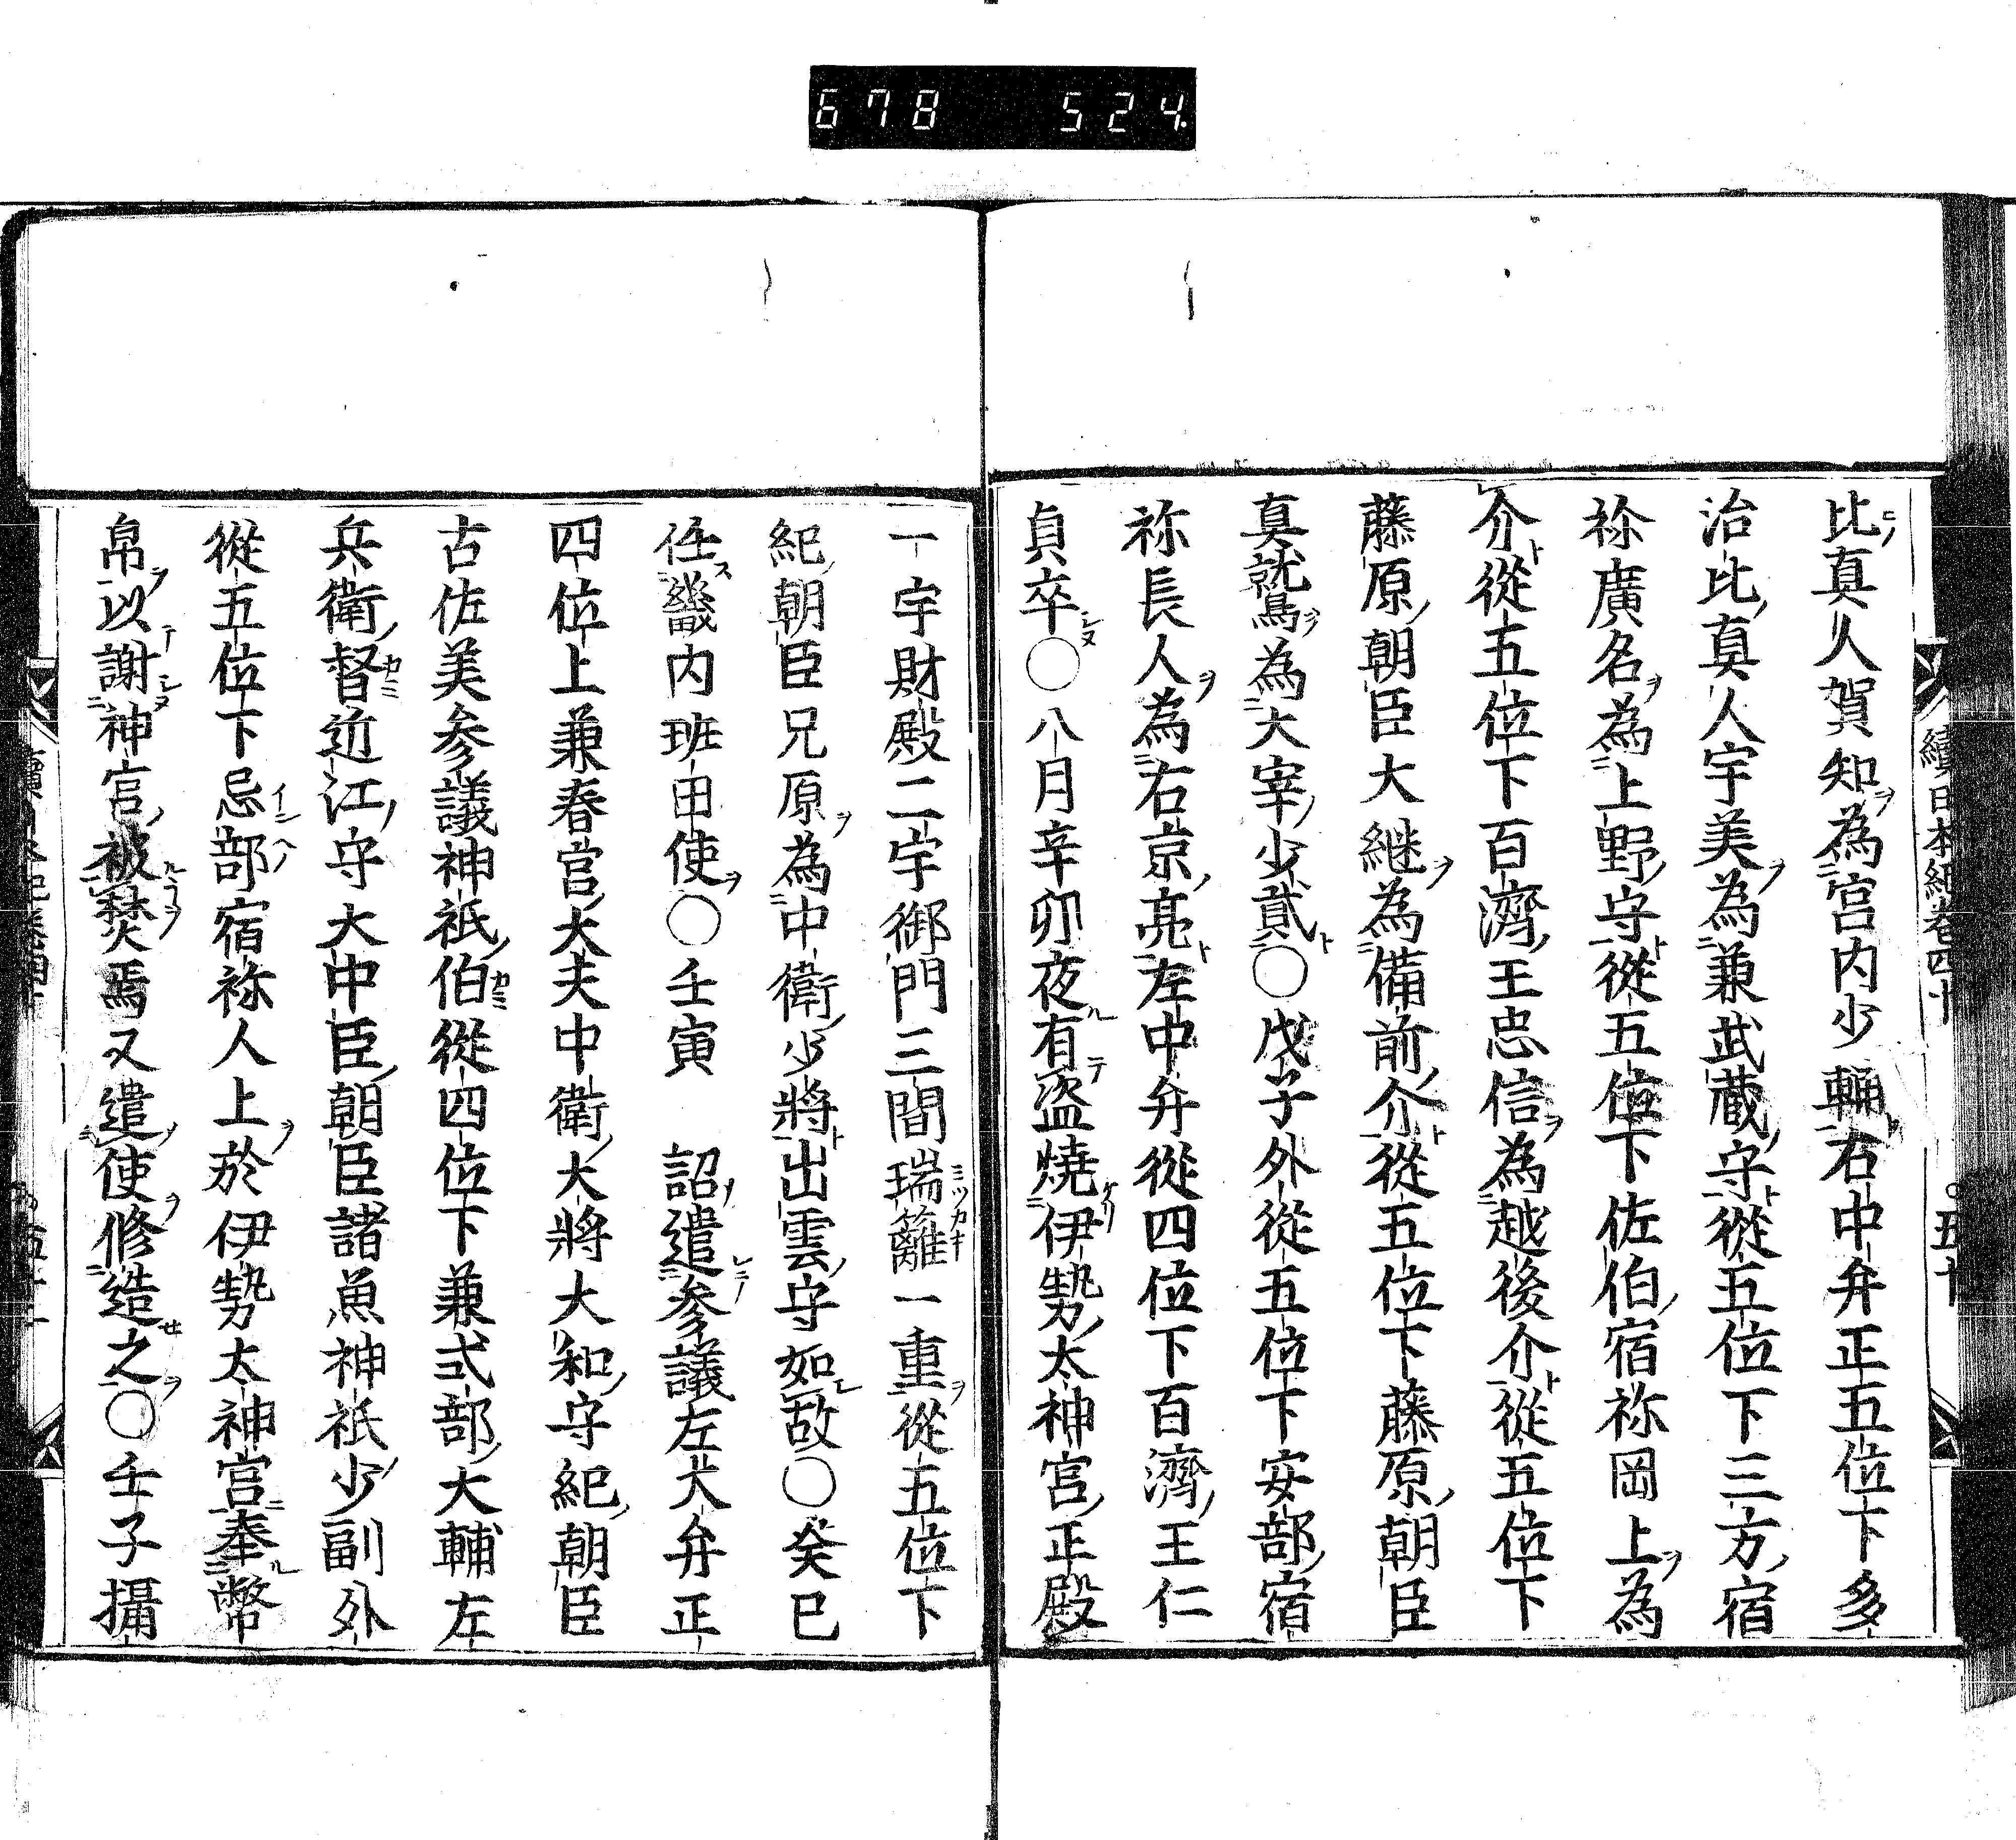 678 524
續日本紀卷四十 五十
比真人賀知為宮内少輔右中弁正五位下多
治比真人宇美為兼武蔵守從五位下三方宿
祢廣名為上野守從五位下佐伯宿祢岡上為
介從五位下百濟王忠信為越後介從五位下
藤原朝臣大継為備前介從五位下藤原朝臣
真鷲為大宰少貳○戊子外從五位下安部宿
祢長人為右京亮左中弁從四位下百濟王仁
貞卒○八月辛卯夜有盗燒伊勢太神宮正殿
一宇財殿二宇御門三間瑞籬一重從五位下
紀朝臣兄原為中衛少將出雲守如故○癸巳
任畿内班田使○壬寅 詔遣参議左大弁正
四位上兼春宮大夫中衛大將大和守紀朝臣
古佐美参議神祇伯從四位下兼式部大輔左
兵衛督近江守大中臣朝臣諸魚神祇少副外
從五位下忌部宿祢人上於伊勢太神宮奉幣
帛以謝神宮被焚焉又遣使修造之○壬子攝